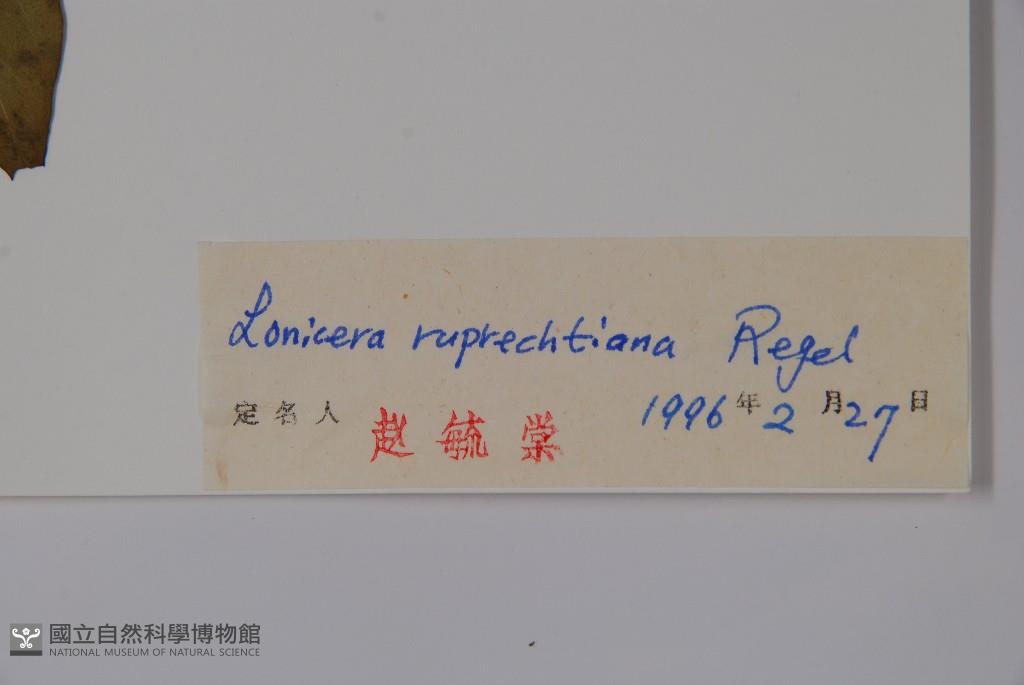 Lonicera ruprechtiana Regel
定名人 赵毓棠 1996年2月27日
國立自然科學博物館
NATIONAL MUSEUM OF NATURAL SCIENCE